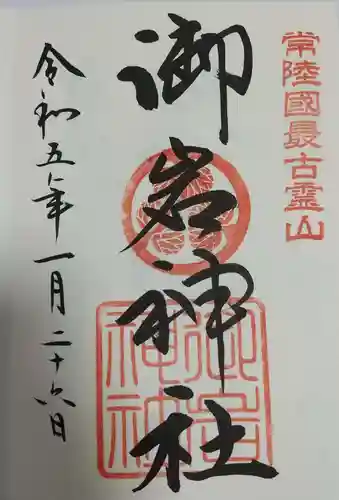 常陸國最古霊山
御岩神社
令和五年一月二十六日
御岩
神社